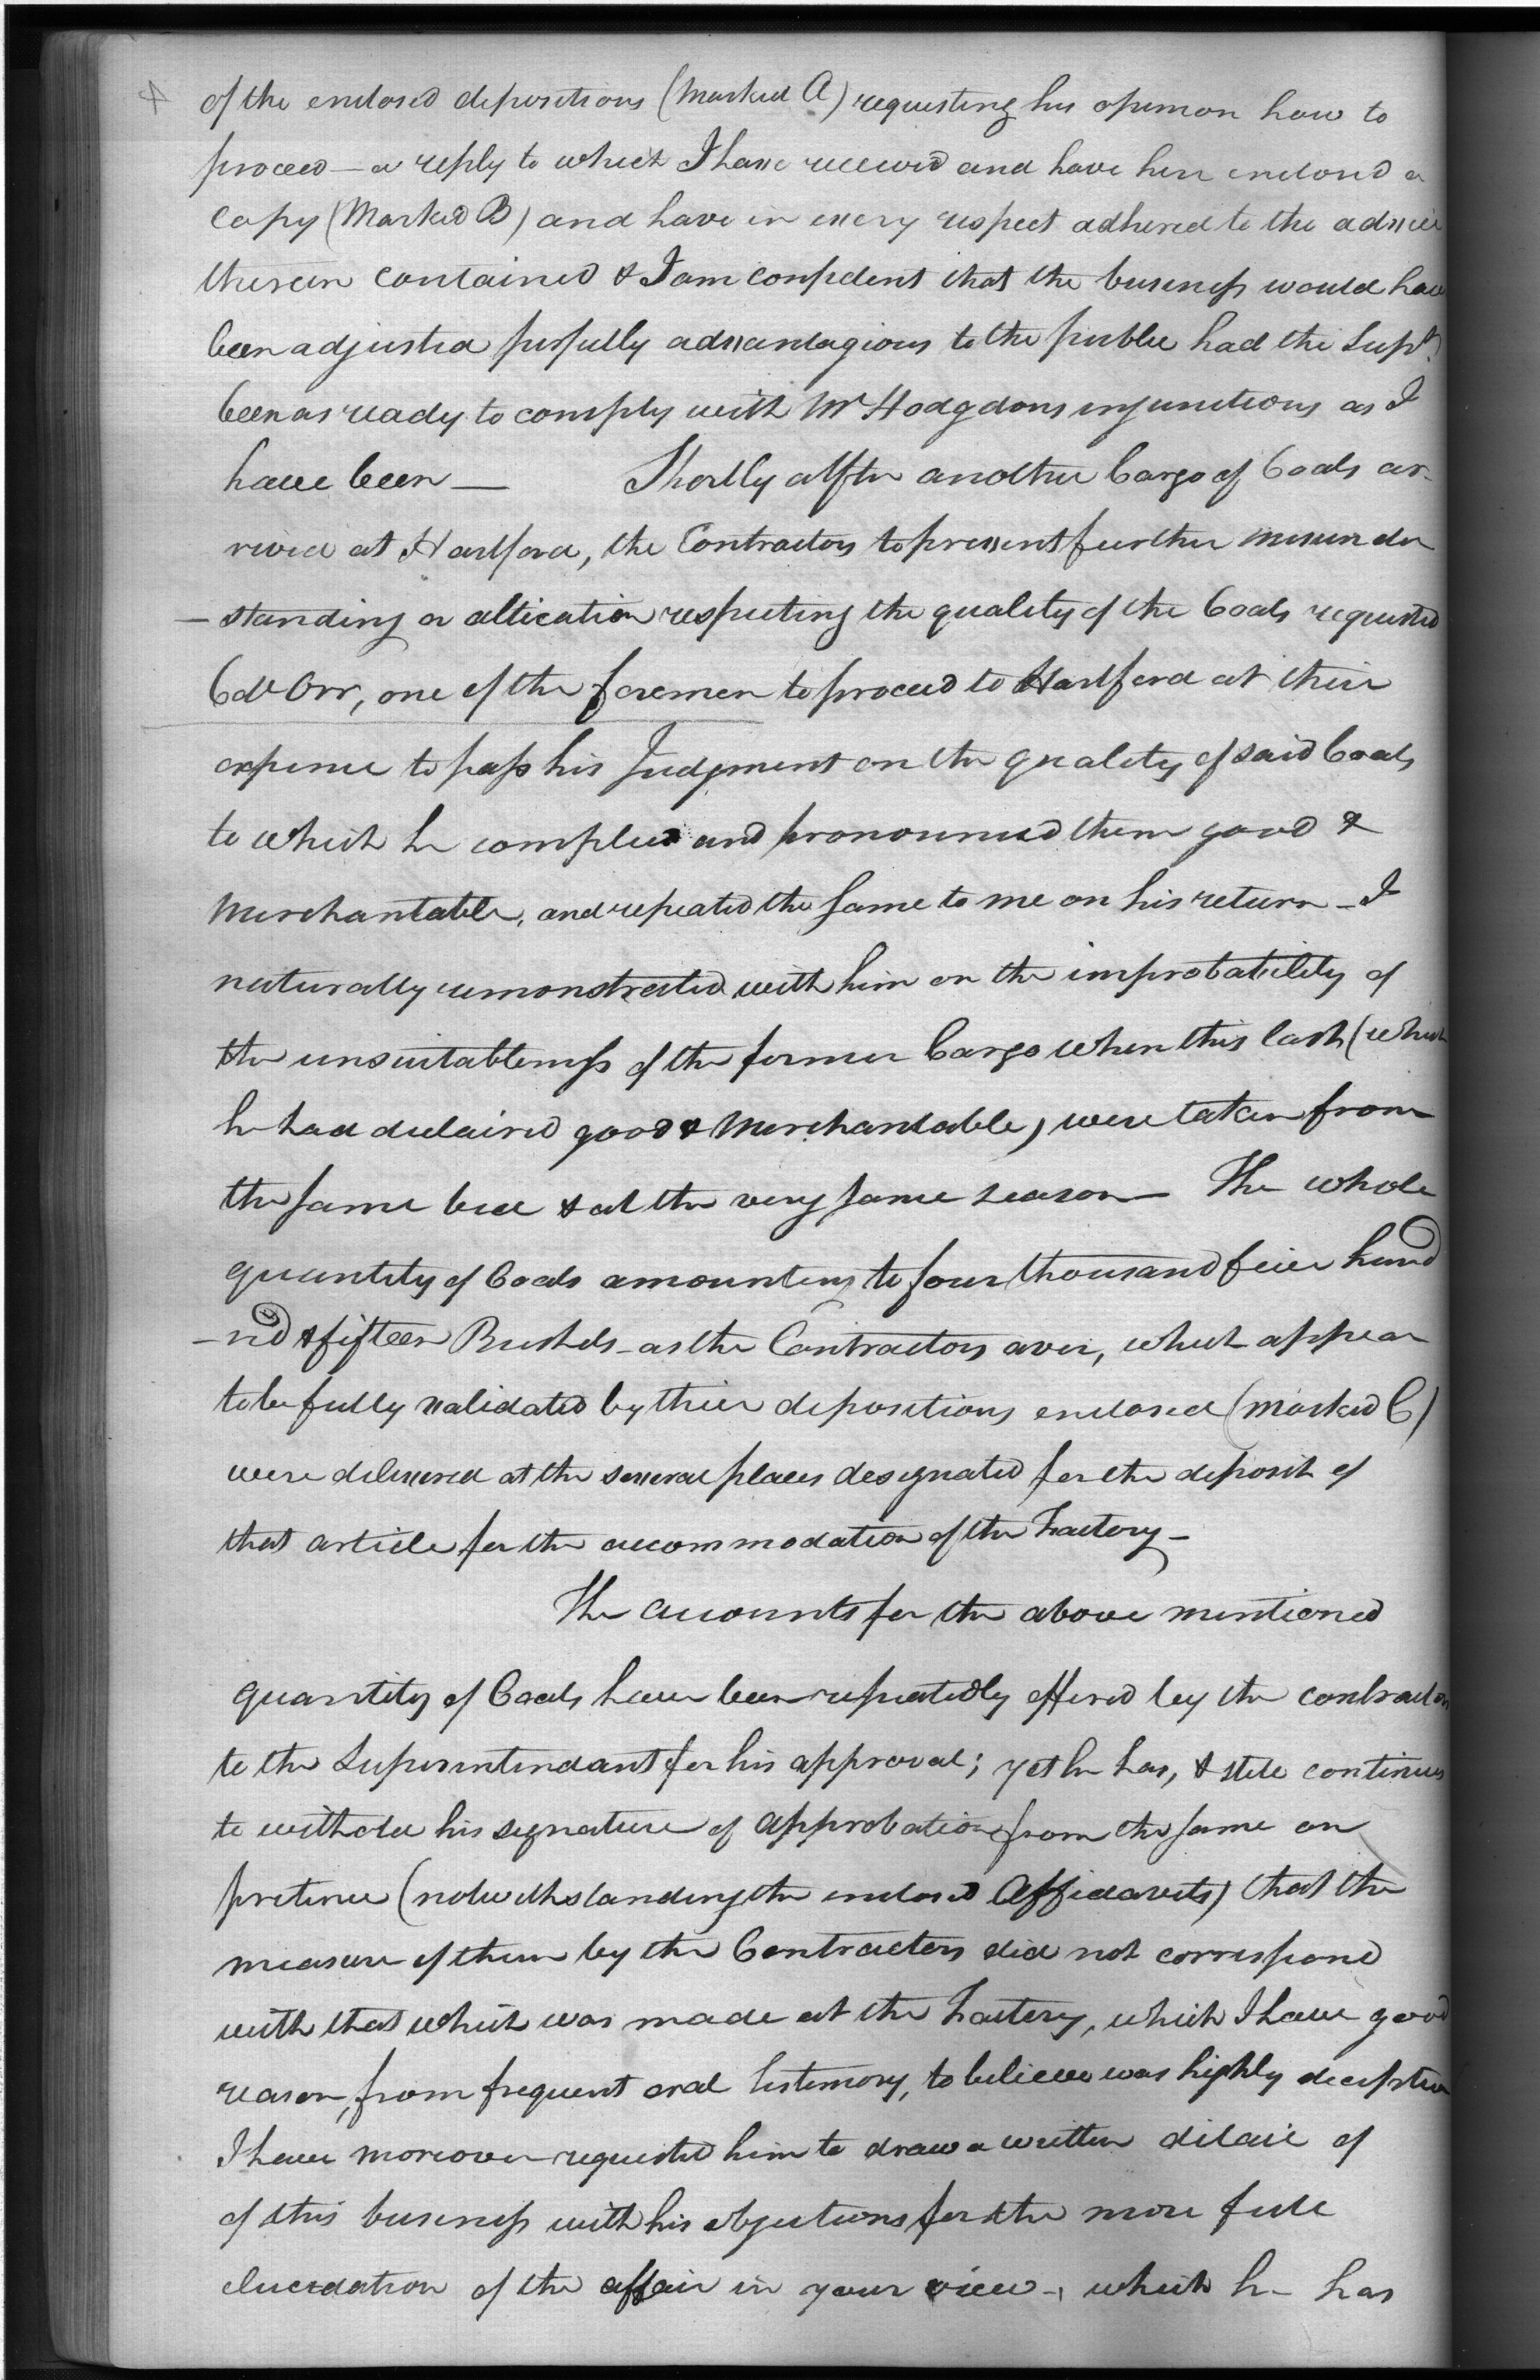 4 of the enclosed depositions (Marked A) requesting his opinion how to
proceed — a reply to which I have received and have here enclosed a
Copy (Marked B) and have in every respect adhered to the advice
therein contained & I am confident that the business would have
been adjusted perfully advantagious to the public had the Supt.
been as ready to comply with Mr Hodgdons injunctions as I
have been — Shortly after another Cargo of Coals ar-
rived at Hartford, the Contractors to prevent further misunder
- standing or altication respecting the quality of the Coals requested
Cdt Orr, one of the foremen to proceed to Hartford at their
expence to pass his Judgment on the quality of said Coals
to which he complied and pronounced them good &
Merchantable, and repeated the same to me on his return - I
naturally remonstrated with him on the improbability of
the unsuitableness of the former Cargo when this last (which
he had declaired good & Merchantable) were taken from
the same bed & at the very same season — The whole
quantity of Coals amounting to four thousand five hund
- red & fifteen Bushels - as the Contractors aver, which appear
to be fully validated by their depositions enclosed (marked C)
were delivered at the several places designated for the deposit of
that article for the accommodation of the Factory -
The accounts for the above mentioned
quantity of Coals have been repeatedly offered by the contractors
to the Superintendant for his approval; yet he has, & still continues
to withold his signature of approbation from the same on
pretence (notwithstanding the enclosed Affidavits) that the
measure of them by the Contractors did not correspond
with that which was made at the Factory, which I have good
reason, from frequent oral testimony, to believe was highly deceptive
I have moreover requested him to draw a written detail of
of this business with his objections for the more full
elucidation of the affair in your view -, which he has